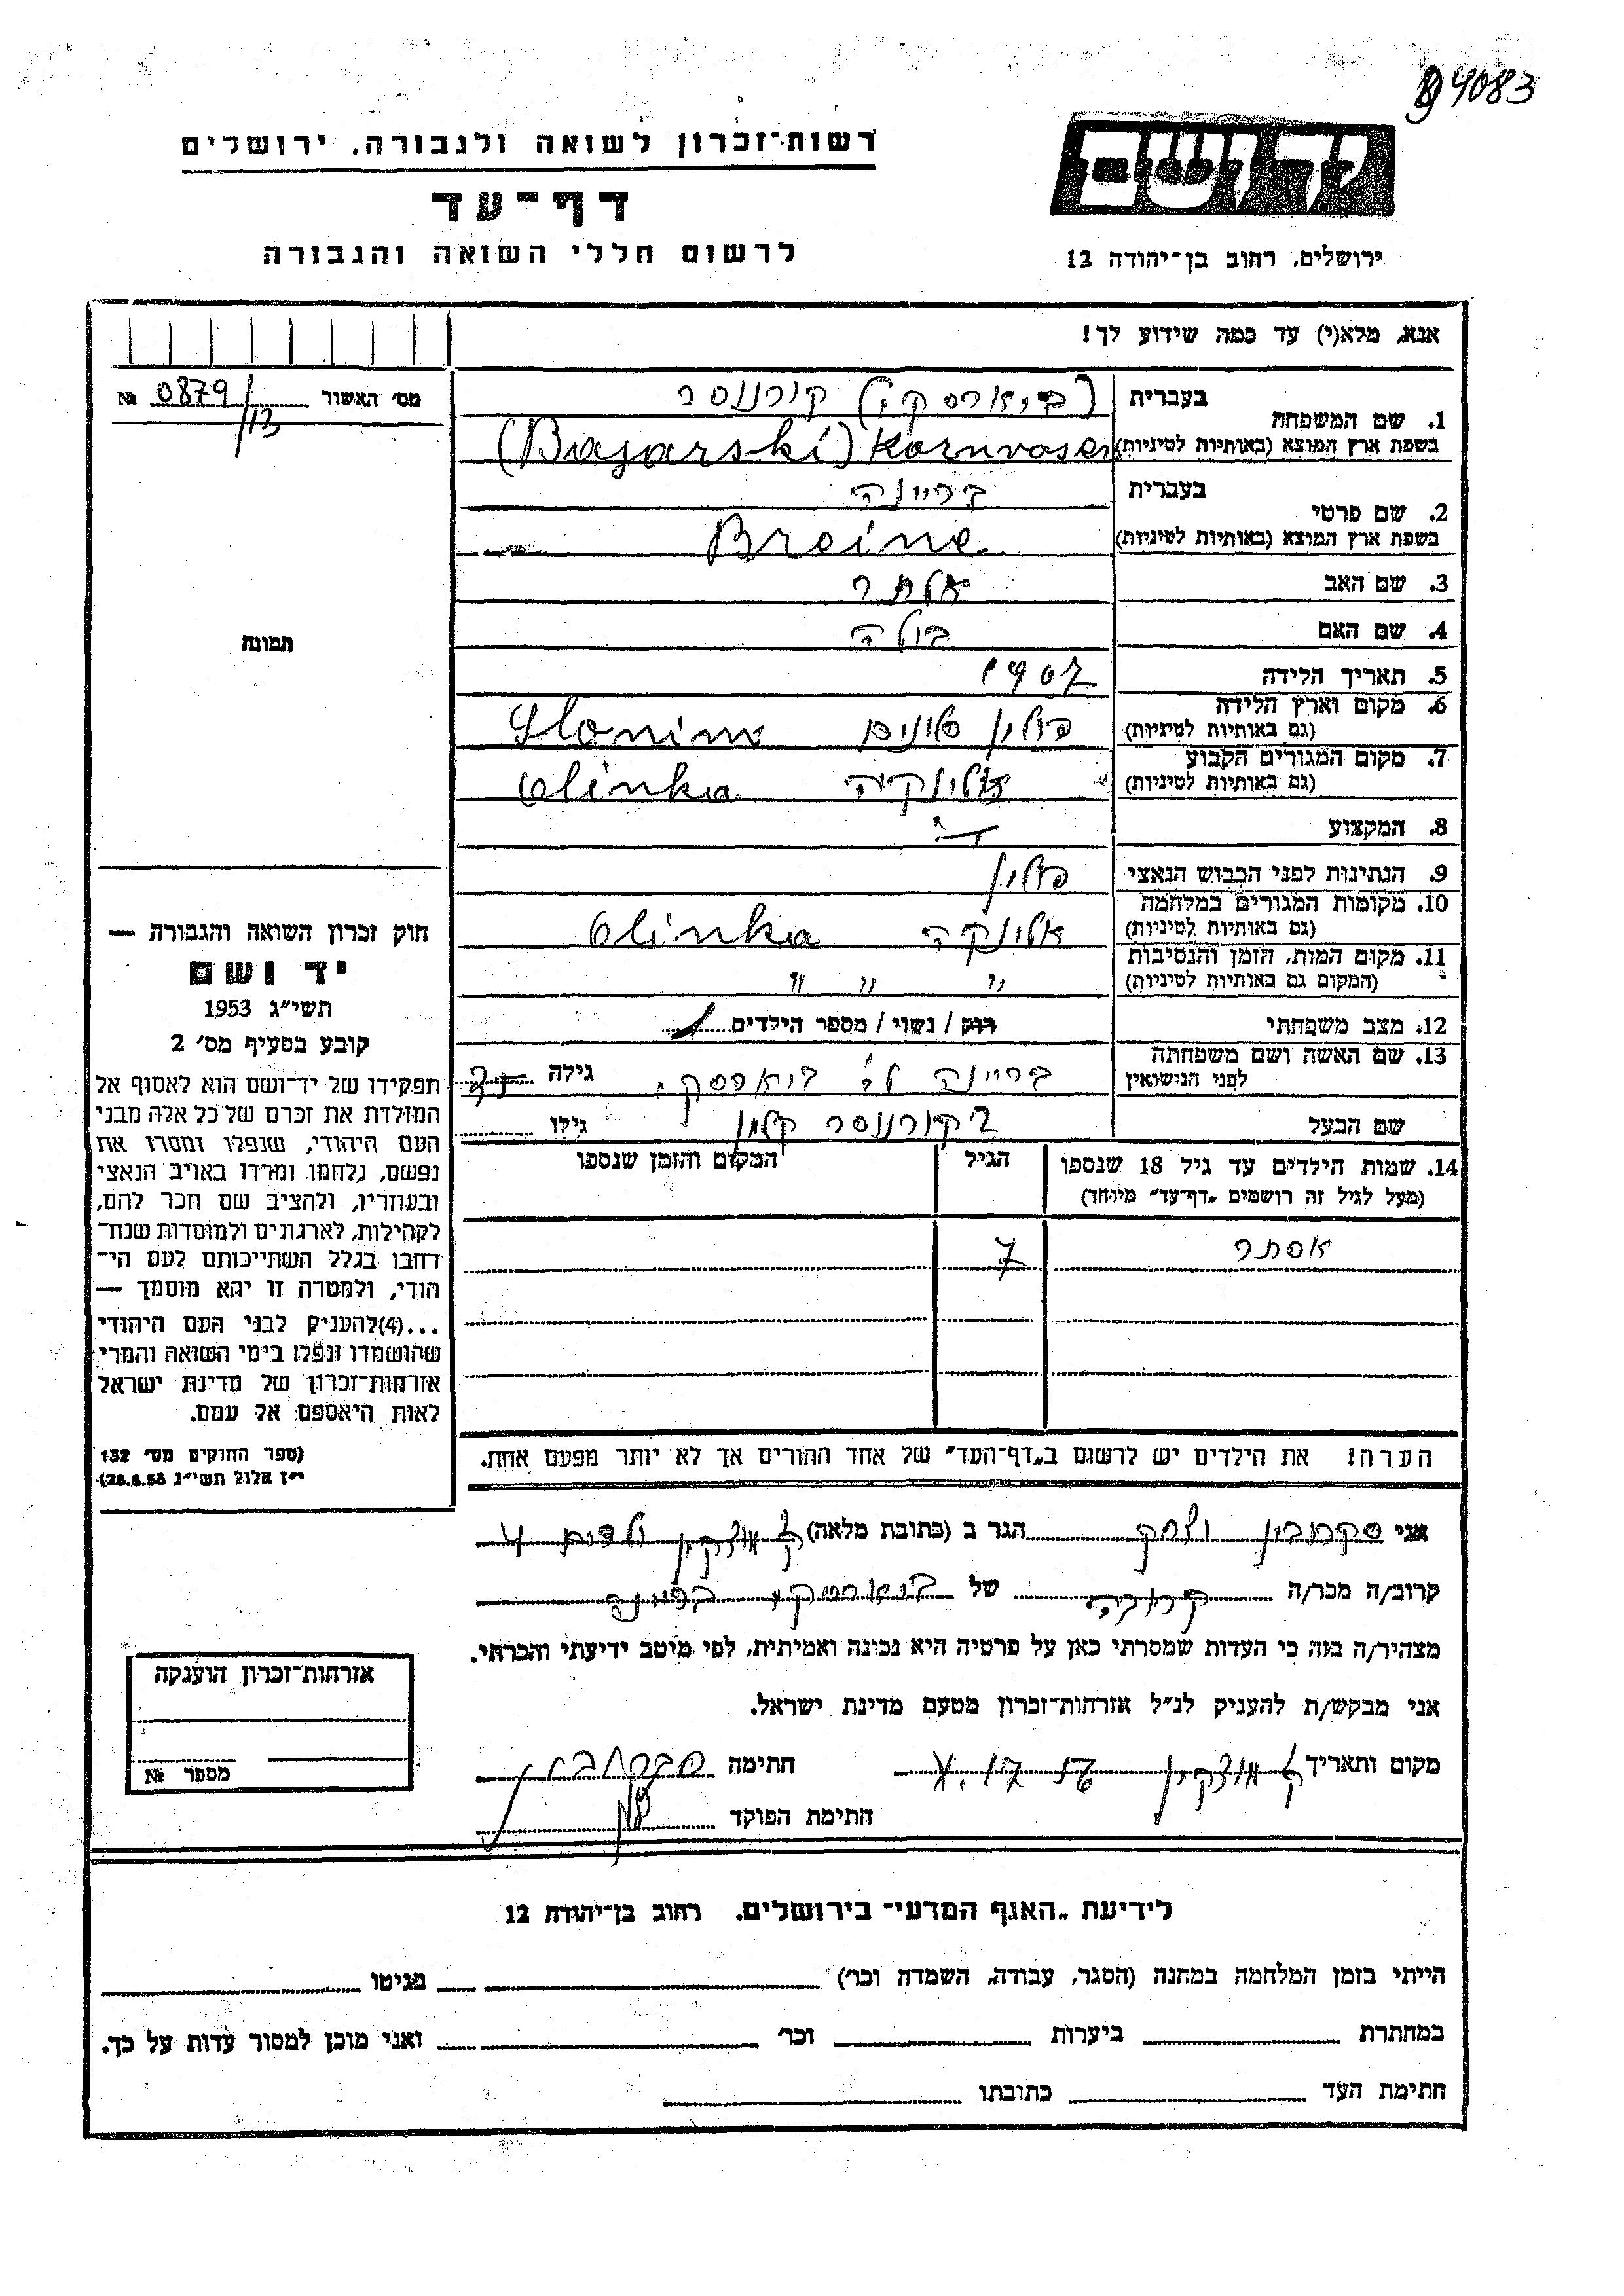 94083
רשות־זכרון לשואה ולגבורה, ירושלים
יד ושם
דף־עד
לרשום חללי השואה והגבורה
ירושלים, רחוב בן־יהודה 12
אנא, מלא(י) עד כמה שידוע לך!
מס׳ האשור № 0879/13
1. שם המשפחה
בעברית (ביארסקי) קורנוסר
בשפת ארץ המוצא (באותיות לטיניות) (Bajarski)
2. שם פרטי
בעברית בריינה
בשפת ארץ המוצא (באותיות לטיניות) Breine
3. שם האב אלתר
4. שם האם בולה
5. תאריך הלידה 1907
6. מקום וארץ הלידה
(גם באותיות לטיניות) פולין סלונים Slonim
7. מקום המגורים הקבוע
(גם באותיות לטיניות) אלינקה Olinka
8. המקצוע
9. הנתינות לפני הכבוש הנאצי פולין
10. מקומות המגורים במלחמה
(גם באותיות לטיניות) אלינקה Olinka
11. מקום המות, הזמן והנסיבות
(המקום גם באותיות לטיניות) " " "
12. מצב משפחתי רוק / נשוי / מספר הילדים 1
13. שם האשה ושם משפחתה
לפני הנישואין בריינה לבי ביארסקי גילה
שם הבעל קורנוסר קלמן גילו
14. שמות הילדים עד גיל 18 שנספו
(מעל לגיל זה רושמים „דף־עד״ מיוחד)
הגיל
המקום והזמן שנספו
אסתר 7
הערה! את הילדים יש לרשום ב„דף־העד״ של אחד ההורים אך לא יותר מפעם אחת.
תמונה
חוק זכרון השואה והגבורה —
יד ושם
תשי״ג 1953
קובע בסעיף מס׳ 2
תפקידו של יד־ושם הוא לאסוף אל
המולדת את זכרם של כל אלה מבני
העם היהודי, שנפלו ומסרו את
נפשם, נלחמו ומרדו באויב הנאצי
ובעוזריו, ולהציב שם וזכר להם,
לקהילות, לארגונים ולמוסדות שנח־
רחבו בגלל השתייכותם לעם הי־
הודי, ולמטרה זו יהא מוסמך —
...(4)להעניק לבני העם היהודי
שהושמדו ונפלו בימי השואה והמרי
אזרחות־זכרון של מדינת ישראל
לאות היאספם אל עמם.
(ספר החוקים מס׳ 132
י״ז אלול תשי״ג 28.8.53)
אני הגר ב (כתובת מלאה) ק מוצקין
קרוב/ה מכר/ה קרובה של ביארסקי בריינה
מצהיר/ה בזה כי העדות שמסרתי כאן על פרטיה היא נכונה ואמיתית, לפי מיטב ידיעתי והכרתי.
אני מבקש/ת להעניק לנ״ל אזרחות־זכרון מטעם מדינת ישראל.
מקום ותאריך ק מוצקין חתימה
חתימת הפוקד
אזרחות־זכרון הוענקה
מספר №
לידיעת „האגף המדעי״ בירושלים. רחוב בן־יהודה 12
הייתי בזמן המלחמה במחנה (הסגר, עבודה, השמדה וכו׳) בגיטו
במחתרת ביערות וכו׳ ואני מוכן למסור עדות על כך.
חתימת העד כתובתו